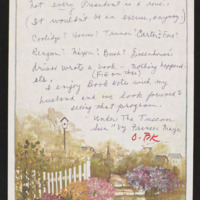 not every President is a louse.
(It wouldn't be an excuse, anyway.)
Coolidge? Hoover? Truman? Carter? Ford?
Reagan? Nixon? Bush? Eisenhower's
driver wrote a book - nothing happened
etc. (Fib on this)
I enjoy Book Note with my
husband and we look forward to
seeing that program.
"Under The Tuscan
Sun" by Frances Maye
O-PK